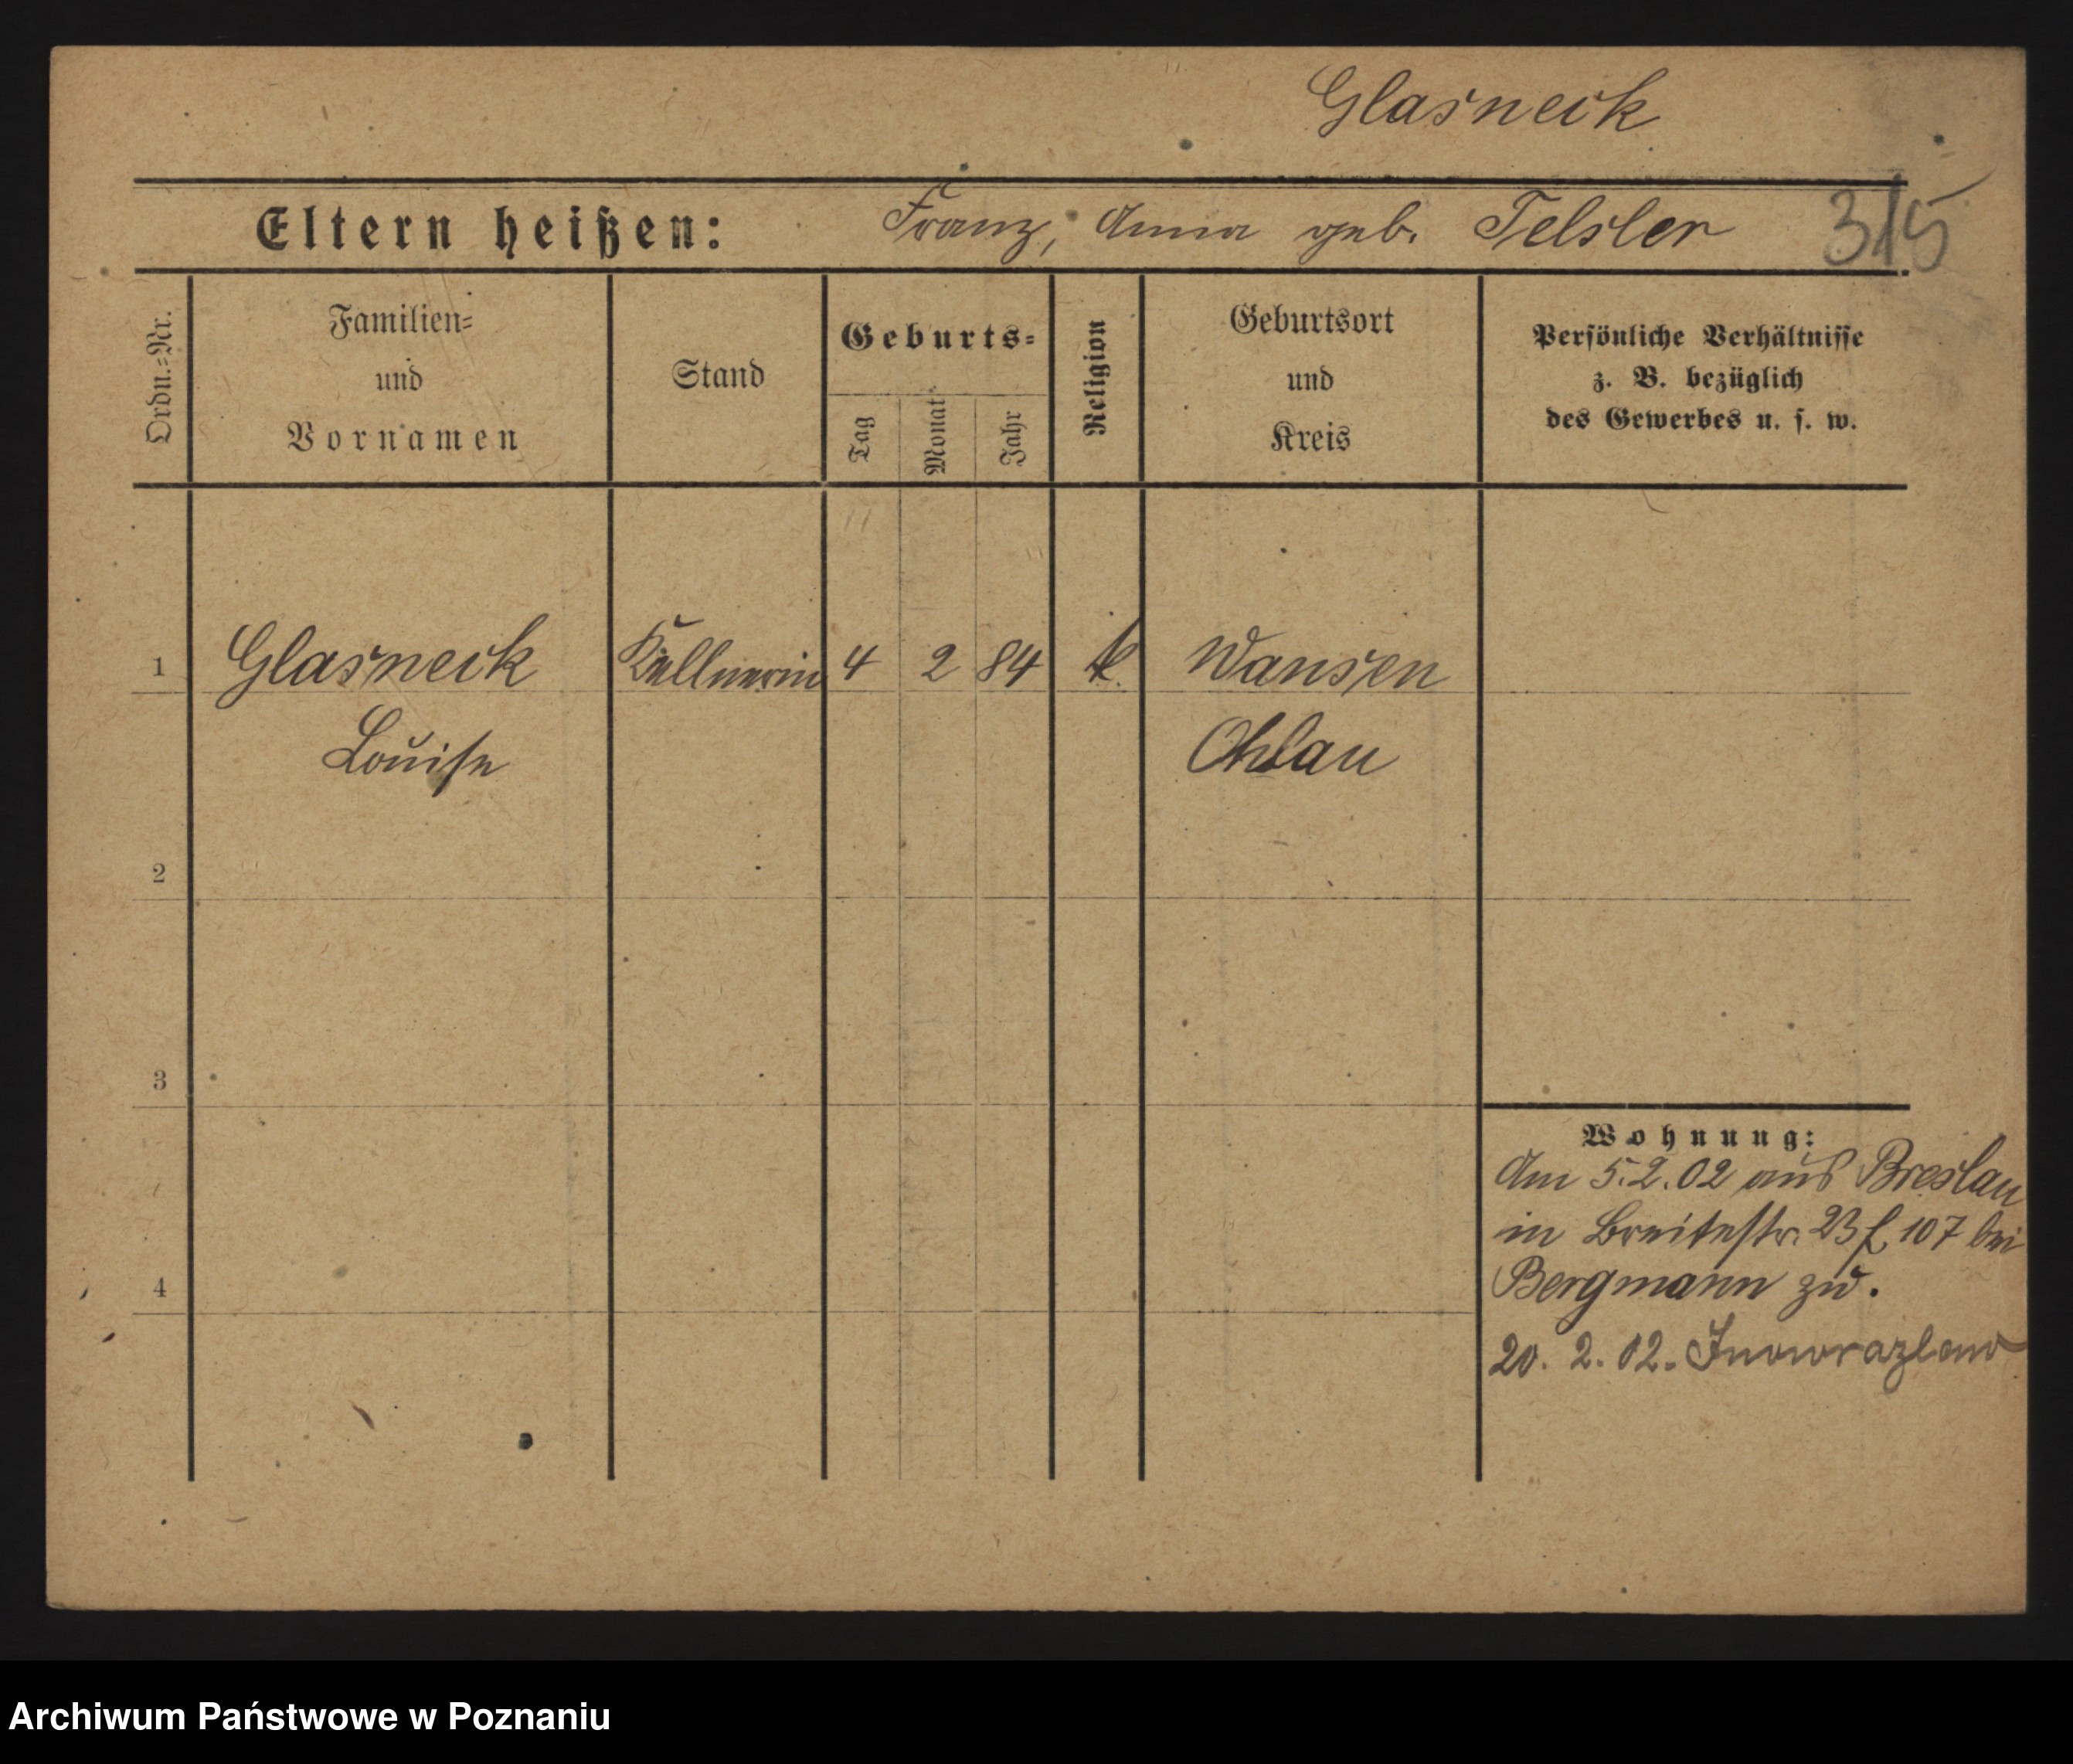 Glasneck
Eltern heißen: Franz, Anna geb. Telsler 315
Ordn.-Nr.
Familien- und Vornamen
Stand
Geburts-
Tag
Monat
Jahr
Religion
Geburtsort und Kreis
Persönliche Verhältnisse
z. B. bezüglich
des Gewerbes u. s. w.
1 Glasneck Kellnerin 4 2 84 k. Wansen
Louise Ohlau
2
3
4
Wohnung:
Am 5.2.02 aus Breslau
in Breitestr. 23 f. 107 bei
Bergmann zu.
20. 2. 02. Inowrazlaw
Archiwum Państwowe w Poznaniu